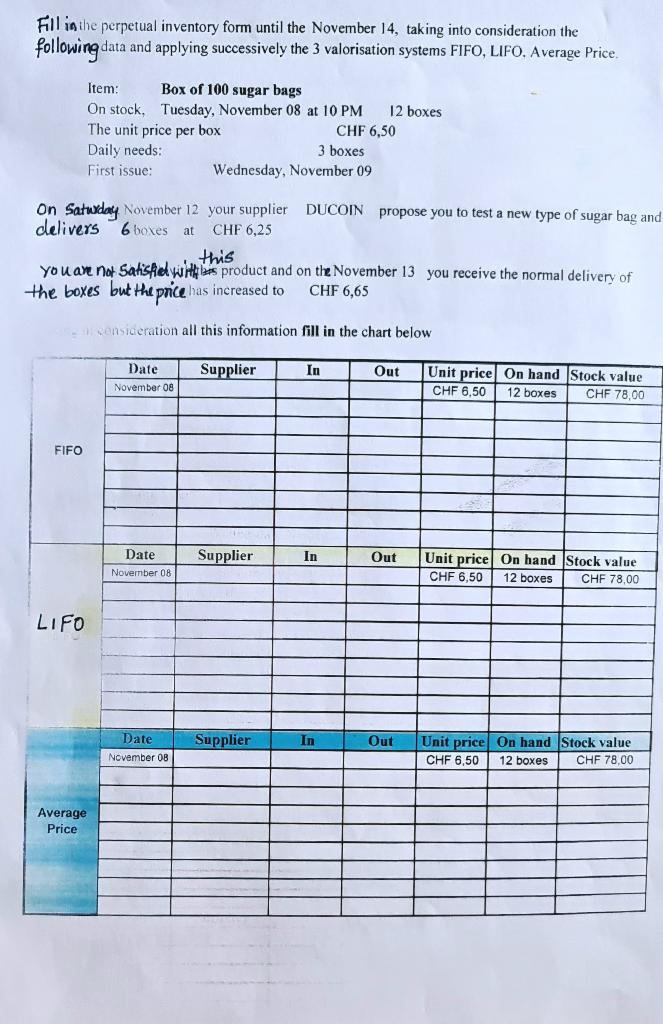 Fill in the perpetual inventory form until the November 14, taking into consideration the
following data and applying successively the 3 valorisation systems FIFO, LIFO, Average Price.
Item: Box of 100 sugar bags
On stock, Tuesday, November 08 at 10 PM 12 boxes
The unit price per box CHF 6,50
Daily needs: 3 boxes
First issue: Wednesday, November 09
On Saturday November 12 your supplier DUCOIN propose you to test a new type of sugar bag and
delivers 6 boxes at CHF 6,25
this
you are not Satisfied with product and on the November 13 you receive the normal delivery of
the boxes but the price has increased to CHF 6,65
consideration all this information fill in the chart below
Date Supplier In Out Unit price On hand Stock value
November 08 CHF 6,50 12 boxes CHF 78,00
FIFO
Date Supplier In Out Unit price On hand Stock value
November 08 CHF 6,50 12 boxes CHF 78,00
LIFO
Date Supplier In Out Unit price On hand Stock value
November 08 CHF 6,50 12 boxes CHF 78,00
Average
Price